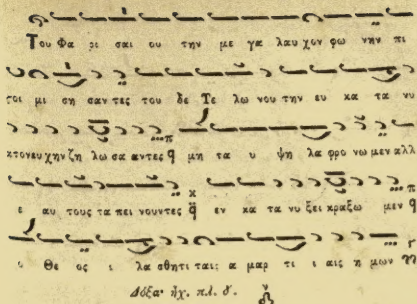 Του Φα ρι σαι ου την με γα λαυ χον φω νην πι
τοι μι ση σαν τες του δε Τε λω νου την ευ κα τα νυ
κτον ευ χην ζη λω σα αντες μη τα υ ψη λα φρο νω μεν αλλ
ε αυ τους τα πει νουντες εν κα τα νυ ξει κραξω μεν
ο Θε ος ι λα σθητι ταις α μαρ τι ι αις η μων
Δόξα· ἦχ. πλ. δ΄.